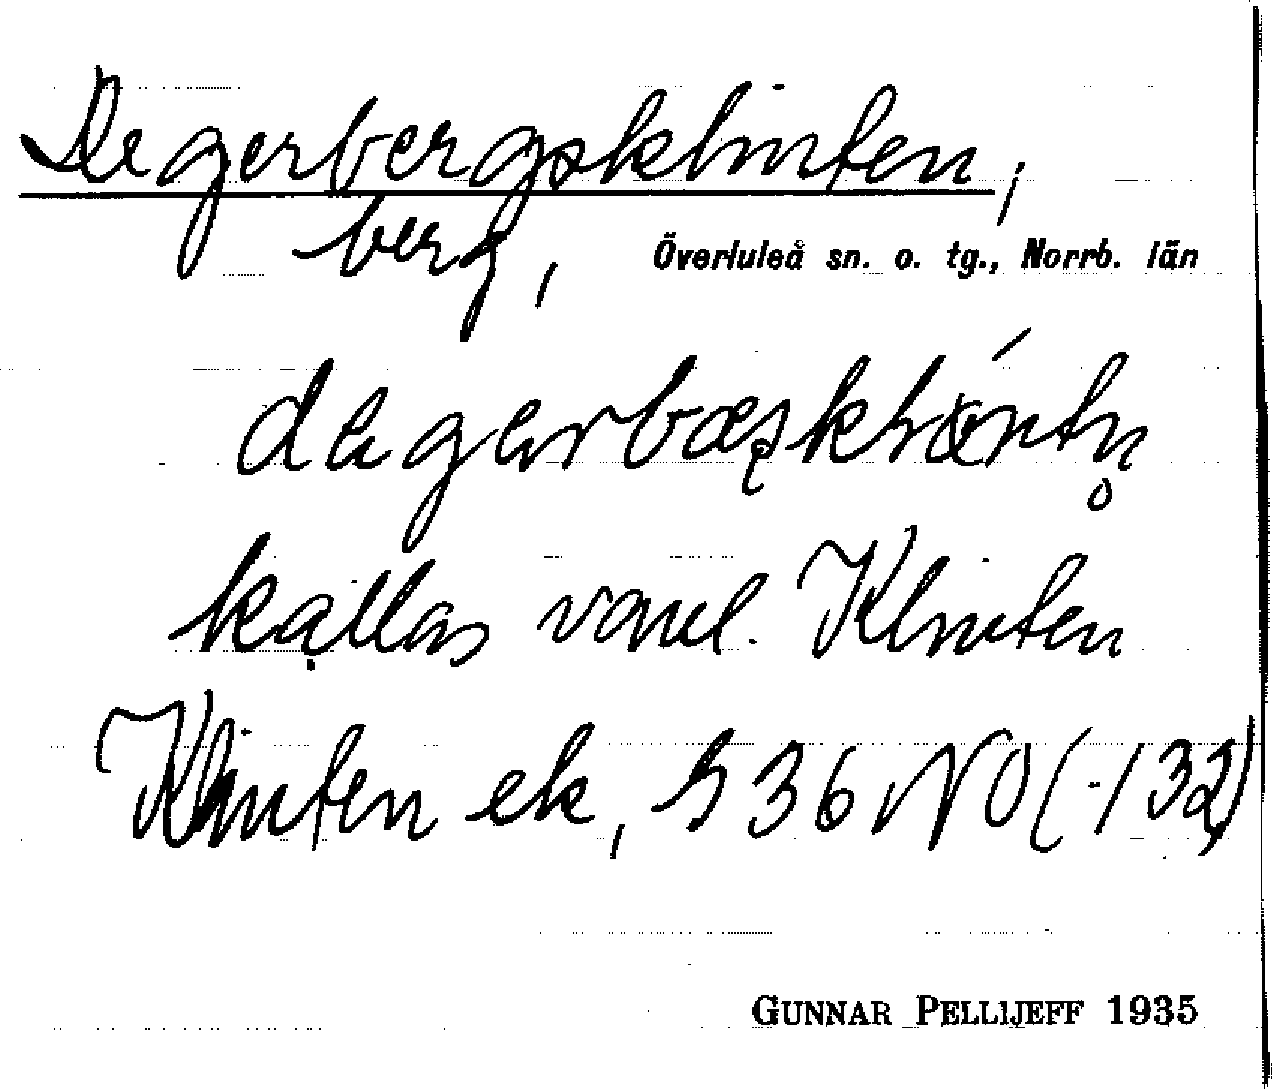 Degerbergsklinten,
berg, Överluleå sn. o. tg., Norrb. län
kallas vanl. Klinten
Klinten ek, S 36 NO (-/32)
GUNNAR PELLIJEFF 1935